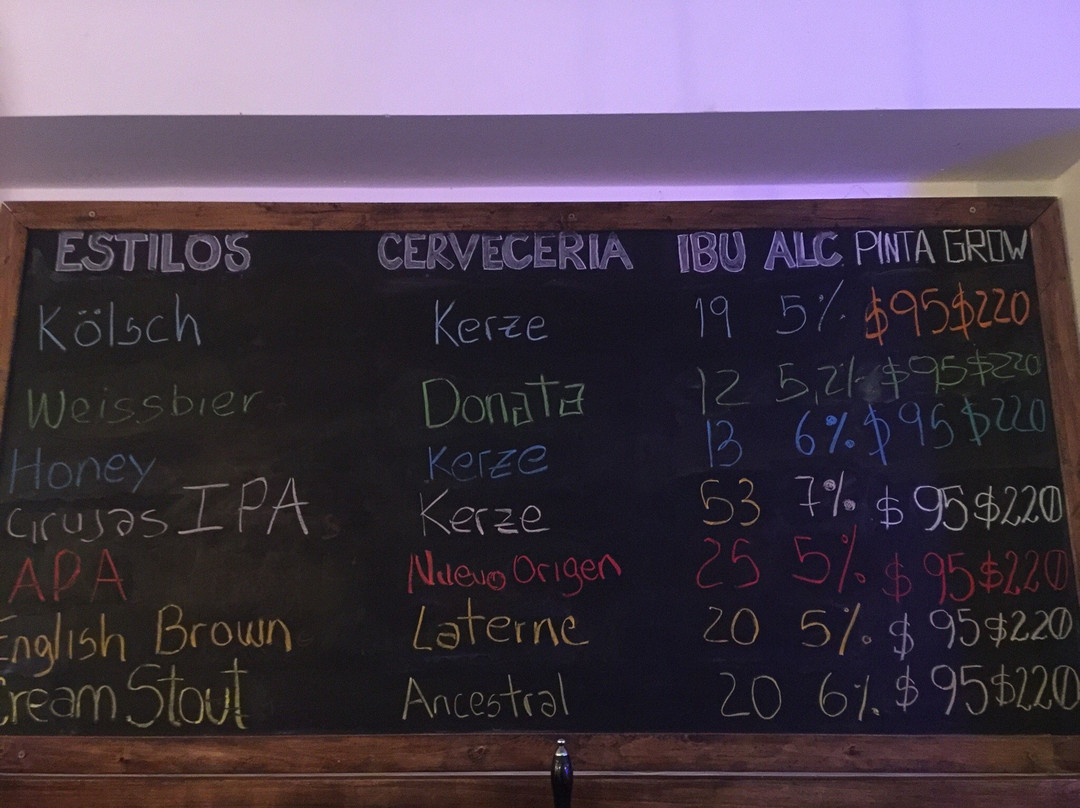 ESTILOS CERVECERIA IBU ALC PINTA GROW
Kölsch Kerze 19 5% $95 $220
Weissbier Donata 12 5,2% $95 $220
Honey Kerze 13 6% $95 $220
Grujas IPA Kerze 53 7% $95 $220
APA Nuevo Origen 25 5% $95 $220
English Brown Laterne 20 5% $95 $220
Cream Stout Ancestral 20 6% $95 $220